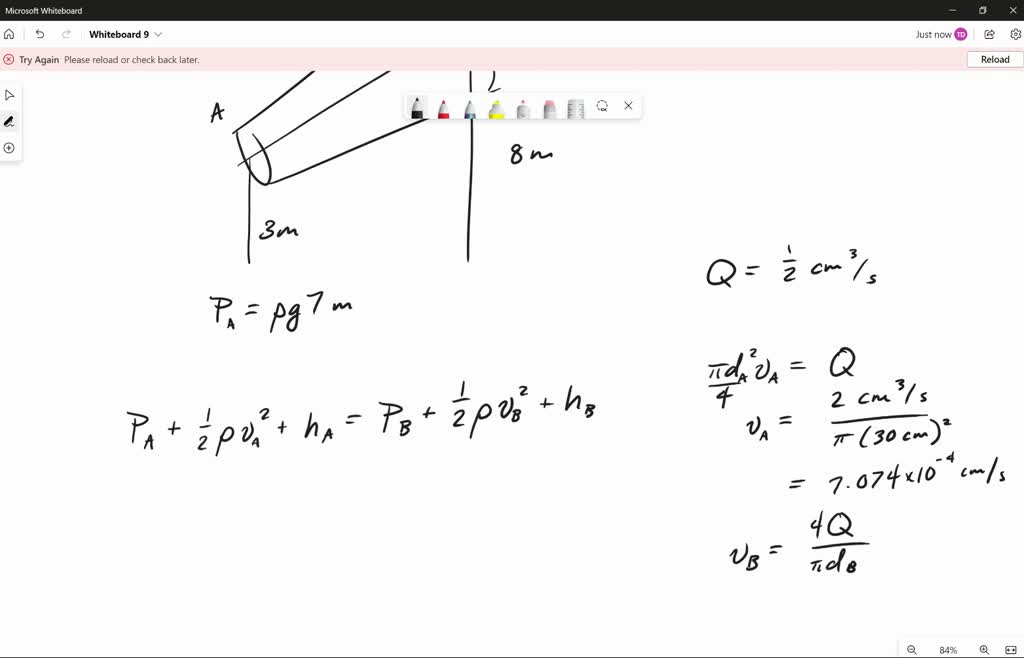 Microsoft Whiteboard
Whiteboard 9
Just now TD
Try Again Please reload or check back later.
Reload
A
8m
3m
P_A = ρg 7 m
P_A + 1/2 ρv_A^2 + h_A = P_B + 1/2 ρv_B^2 + h_B
Q = 1/2 cm^3/s
πd_A^2/4 v_A = Q
v_A = 2 cm^3/s / π(30 cm)^2
= 7.074×10^-4 cm/s
v_B = 4Q / πd_B
84%